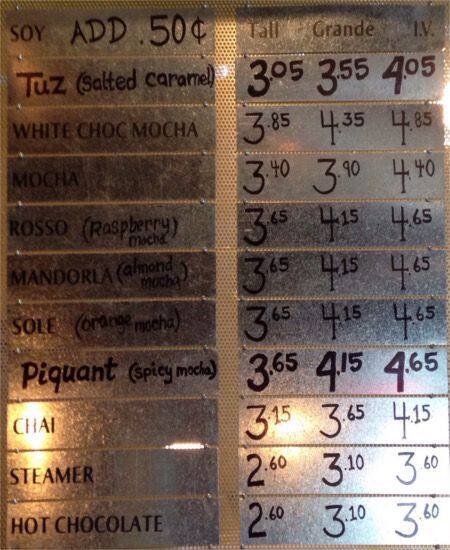 SOY ADD .50¢ Tall Grande I.V.
Tuz (salted caramel) 3.05 3.55 4.05
WHITE CHOC MOCHA 3.85 4.35 4.85
MOCHA 3.40 3.90 4.40
ROSSO (Raspberry mocha) 3.65 4.15 4.65
MANDORLA (almond mocha) 3.65 4.15 4.65
SOLE (orange mocha) 3.65 4.15 4.65
Piquant (spicy mocha) 3.65 4.15 4.65
CHAI 3.15 3.65 4.15
STEAMER 2.60 3.10 3.60
HOT CHOCOLATE 2.60 3.10 3.60